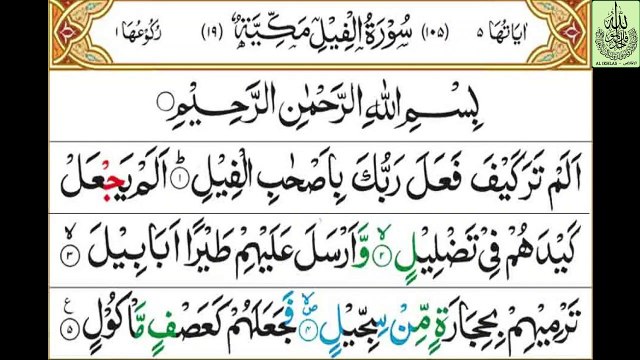 اٰیَاتُهَا ٥ (١٠٥) سُوْرَةُ الْفِيْلِ مَكِّيَّةٌ (١٩) رُكُوْعُهَا ١
AL IKHLAS
بِسْمِ اللهِ الرَّحْمٰنِ الرَّحِيْمِ
اَلَمْ تَرَ كَيْفَ فَعَلَ رَبُّكَ بِاَصْحٰبِ الْفِيْلِ ؕ﴿١﴾ اَلَمْ يَجْعَلْ
كَيْدَهُمْ فِيْ تَضْلِيْلٍ ۙ﴿٢﴾ وَّاَرْسَلَ عَلَيْهِمْ طَيْرًا اَبَابِيْلَ ۙ﴿٣﴾
تَرْمِيْهِمْ بِحِجَارَةٍ مِّنْ سِجِّيْلٍ ۪ۙ﴿٤﴾ فَجَعَلَهُمْ كَعَصْفٍ مَّاْكُوْلٍ ﴿٥﴾ ع